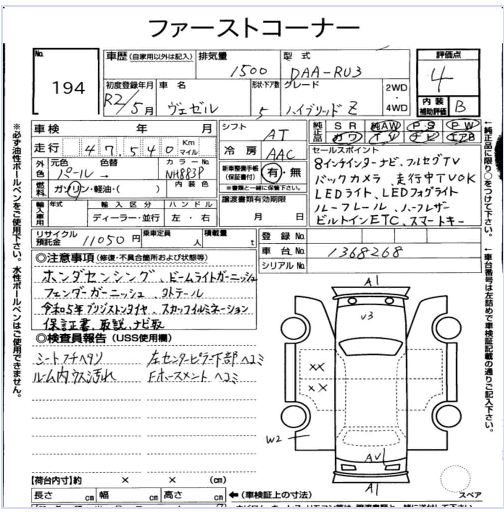 ファーストコーナー
No. 194
車歴 (自家用以外は記入) 排気量 1500 型式 DAA-RU3
評価点 4
初度登録年月 R2/5月 車名 ヴェゼル 形状・ドア数 5 グレード ハイブリッド Z 2WD・4WD
内装補助評価 B
車検 年 月 シフト AT
純正品 SR 純AW PS PW
走行 47,540 Km マイル 冷房 AAC
セールスポイント
8インチインターナビ、フルセグTV
バックカメラ 走行中TVOK
LEDライト、LEDフォグライト
ルーフレール
ビルトインETC、スマートキー
外色 元色 パール→ 色替 カラーNo NH883P
内装色
新車整備手帳(保証書付) 有・無
※書類と一緒に保管下さい。
燃料 ガソリン・軽油・( )
譲渡書類有効期限 月 日
輸入車用 年式 輸入区分 ディーラー・並行 ハンドル 左・右
リサイクル預託金 11050円 乗車定員 人 積載量 t
登録No
車台No 1368268
シリアルNo
◎注意事項 (修復・不具合箇所および状態等)
ホンダセンシング、ビームライトガーニッシュ
フェンダーガーニッシュ
令和5年ブリジストンタイヤ、スカッフイルミネーション
保証書、取説、ナビ取
◎検査員報告 (USS使用欄)
シートフチヘタリ 左センターピラー下部ヘコミ
ルーム内ウス汚れ Fホースメントヘコミ
A1
v3
××
××
W2
AV
A1
スペア
【荷台内寸】約 × × (cm)
長さ cm 幅 cm 高さ cm ←(車検証上の寸法)
※必ず油性ボールペンをご使用下さい。水性ボールペンはご使用できません。
(純正品に限り)をつけて下さい。
車台番号は左詰めで車検証記載の通りにご記入下さい。